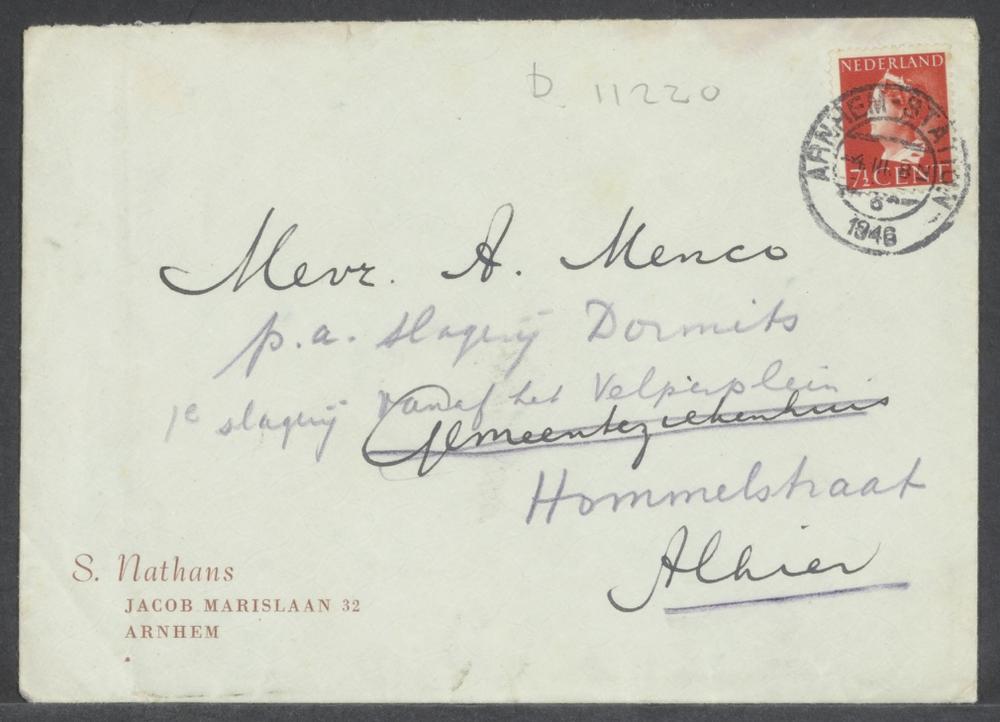 D 11220
NEDERLAND
7½ CENT
ARNHEM-STATION
1946
Mevr. A. Menco
p.a. slagerij Dormits
1e slagerij vanaf het Velperplein.
Gemeenteziekenhuis
Hommelstraat
Alhier
S. Nathans
JACOB MARISLAAN 32
ARNHEM